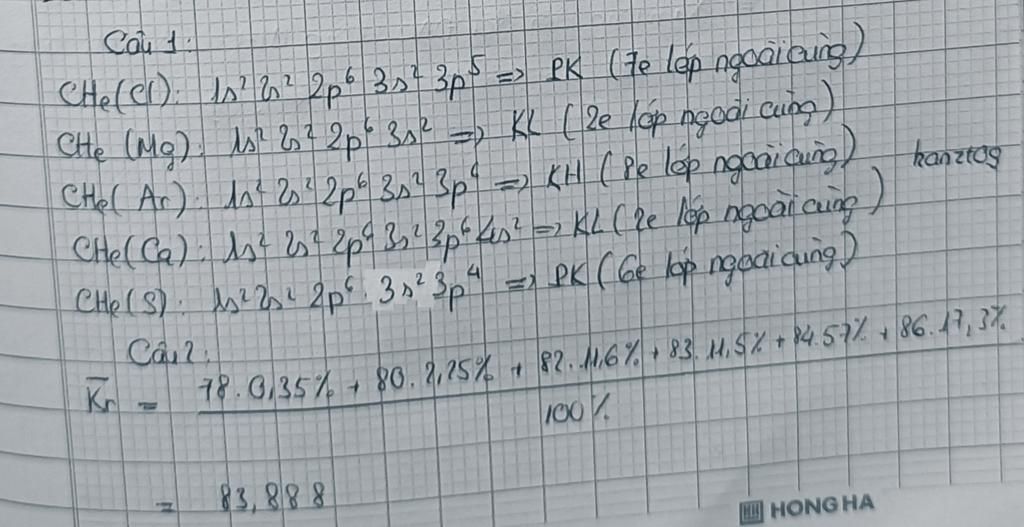 Câu 1:
CHe(Cl): 1s² 2s² 2p⁶ 3s² 3p⁵ => PK (7e lớp ngoài cùng)
CHe (Mg): 1s² 2s² 2p⁶ 3s² => KL (2e lớp ngoài cùng)
CHe( Ar): 1s² 2s² 2p⁶ 3s² 3p⁶ => KH (8e lớp ngoài cùng)
hanztag
CHe(Ca): 1s² 2s² 2p⁶ 3s² 3p⁶ 4s² => KL (2e lớp ngoài cùng)
CHe(S): 1s² 2s² 2p⁶ 3s² 3p⁴ => PK (6e lớp ngoài cùng)
Câu 2:
K̅r = 78.0,35% + 80.2,25% + 82.11,6% + 83.11,5% + 84.57% + 86.17,3%
100%
= 83,888
HONG HA